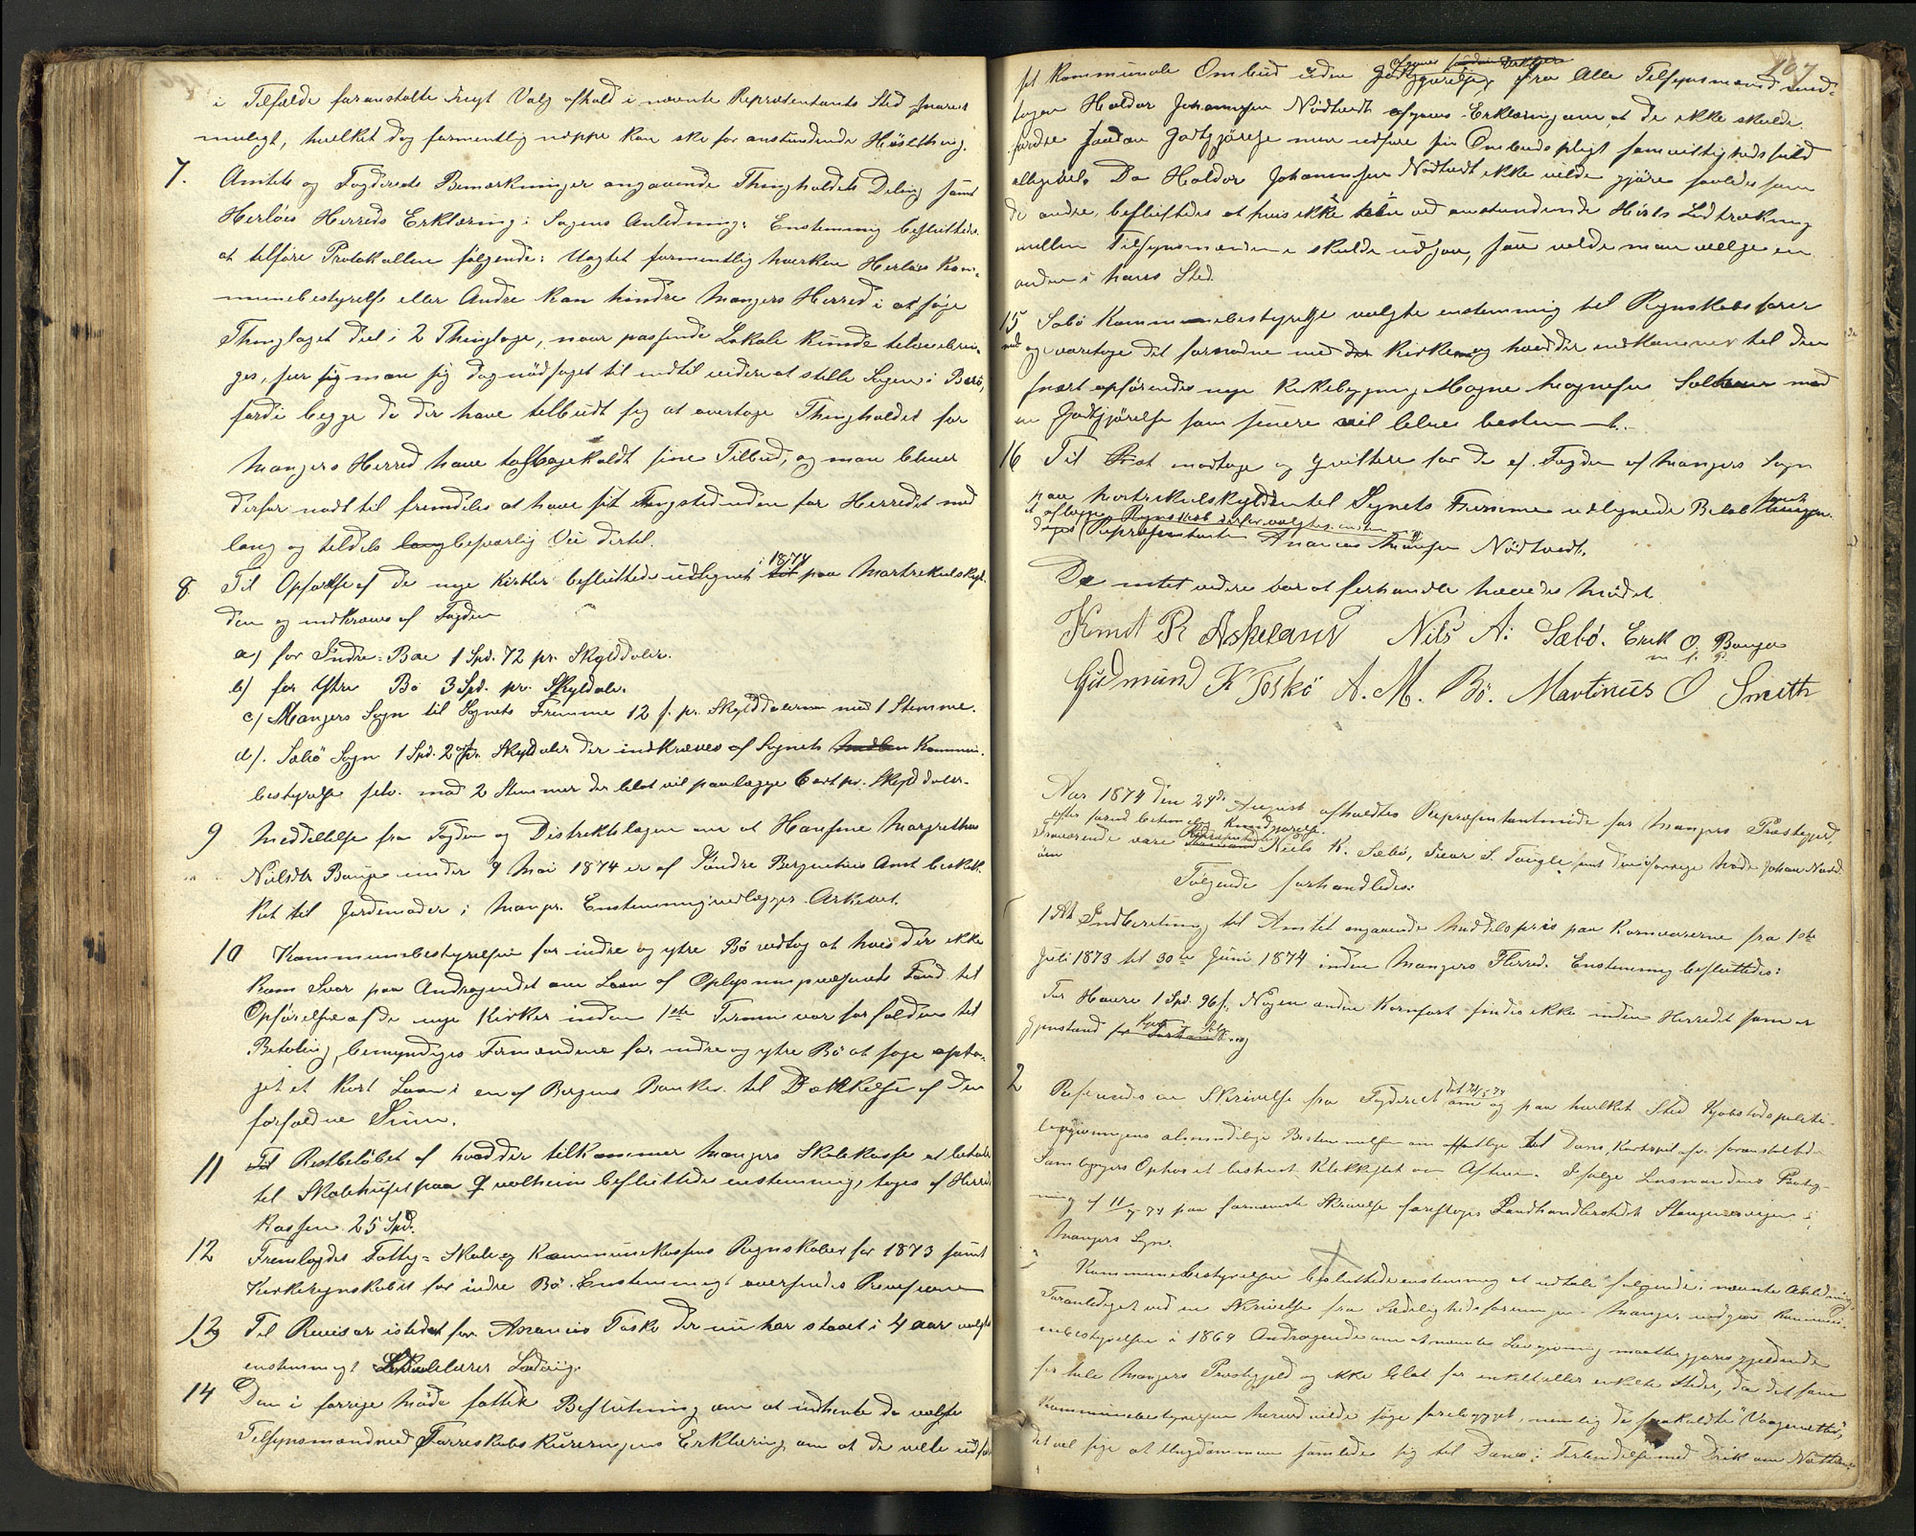 i Tilfælde foranstalte nyt Valg afholdt i nævnte Repræsentants Sted snarest
muligt, hvilket dog formentlig neppe kan ske før anstundende Høstthing.
7. Amtets og Fogderiets Bemærkninger angaaende Thingholdets Deling samt
Herløes Herreds Erklæring i Sagens Anledning: Enstemmig besluttedes
at tilføre Protokollen følgende: Uagtet formentlig hverken Herløes Kom-
munebestyrelse eller Andre kan hindre Mangers Herred i at søge
Thinglaget deelt i 2 Thinglage, naar passende Lokale kunde tilveiebrin-
ges, ser man sig dog nødsaget til indtil videre at stille Sagen i Bero,
fordi begge de der have tilbudt sig at overtage Thingholdet for
Mangers Herred have tilbagekaldt sine Tilbud, og man bliver
derfor nødt til fremdeles at have sit Thingsted uden for Herredet med
lang og tildels besværlig Vei dertil.
8. Til Opførelse af de nye Kirker besluttedes udlignet i 1874 paa Martrikulskyl-
den og indkræves af Fogden
a) for Indre-Bøe 1 Spd. 72 pr. Skylddaler.
b) for Ytre Bø 3 Spd. pr. Skyldaler.
c) Mangers Sogn til Sognets Fremme 12 s. pr. Skylddaleren med 1 Stemme.
d). Sæbø Sogn 1 Spd. 2 ort pr. Skyldaler der indkræves af Sognets Kommune-
bestyrelse selv. mod 2 Stemmer der blot vil paalægge 6 ort pr. Skylddaler.
9 Meddelelse fra Fogden og Distriktslægen om at Hansine Margrethe
Nilsdtr Bauge under 9 Mai 1874 er af Søndre Bergenhus Amt beskik-
ket til Jordemoder i Manger. Enstemmig: vedlægges Arkivet.
10 Kommunebestyrelsen for indre og ytre Bø vedtog at hvis der ikke
kom Svar paa Andragendet om Laan af Oplysningsvæsenets Fond til
Opførelse af de nye Kirker inden 1ste Termin var forfalden til
Betaling, bemyndiges Formændene for indre og ytre Bø at søge opta-
get et kort Laan i en af Bergens Banker til Dækkelse af den
forfaldne Sum.
11 Restbeløbet af hvad der tilkommer Mangers Skolekasse at betale
til Skolehuset paa Qvalheim besluttedes enstemmig, tages af Herreds
Kassen 25 Spd.
12 Fremlagdes Fattig- Skole og Kommunekassens Regnskaber for 1873 samt
Kirkeregnskabet for indre Bø. Enstemmigt oversendes Revisoren
13 Til Revisor istedet for Ananias Toske der nu har staaet i 4 Aar valgtes
enstemmigt Skolelærer Ludvig.
14 Den i forrige Møde fattede Beslutning om at indhente de valgte
Tilsynsmænd ved Torreskabskureringens Erklæring om at de ville udføre
107
sit kommunale Ombud uden Godtgjørelse, Fra Alle Tilsynsmænd und-
tagen Haldor Johannesen Nødtvedt afgaves Erklæring om at de ikke skulde
fordre saadan Godtgjørelse men udføre sin Ombudspligt samvittighedsfuld
alligevel. Da Haldor Johannesen Nødtvedt ikke vilde gjøre saaledes som
de andre, besluttedes at hvis ikke han ved anstundende Høsts Lodtrækning
mellem Tilsynsmændene skulde udgaa, saa vilde man vælge en
anden i hans Sted.
15 Sæbø Kommunebestyrelse valgte enstemmig til Regnskabsfører
og varetage det fornødne med Kirken og hvad der vedkommer til den
snart opførendes nye Kirkebygning Mogne Mognesen Solheim mod
en Godtgjørelse som senere vil blive bestemt.
16 Til at modtage og qvittere for de af Fogden af Mangers Sogn
paa Martrikulskylden til Sognets Fremme udlignede Beløb samt
at aflægge Regnskab derfor valgtes enstem-
Repræsentanten Ananias Nødtvedt.
Da intet videre var at forhandle hævedes Mødet
Knut R Askeland Nils A. Sæbø. Erik O. Bauge
m f. P.
Gudmund K Toskø A. M. Bø. Martinus O Smith
Aar 1874 den 24de August afholdtes Repræsentantmøde for Mangers Præstegjeld,
efter forud bestemt Kundgjørelse.
Fraværende vare Repræsentanterne Niels K. Sæbø, Iver S. Tougle samt den i forrige Møde Johan Nord-
øen
Følgende forhandledes:
1. At Indberetning til Amtet angaaende Middelpris paa Kornvarerne fra 1ste
Juli 1873 til 30te Juni 1874 inden Mangers Herred. Enstemmig besluttedes:
For Havre 1 Spd. 96 s. Nogen anden Kornsort findes ikke inden Herredet som er
Gjenstand for Kjøb og Salg.
2 Oplæstes en Skrivelse fra Fogderiet om og paa hvilket Sted Kjøbstadspoliti-
lovgivningens almindelige Bestemmelser om offentlige Dans, Kortspil osv. foranstaltede
Samlingers Ophør et bestemt Klokkeslet om Aftenen. Ifølge Lensmandens Paateg-
ning af 11/7-74 paa fornævnte Skrivelse foresloges Landhandlerstedet Stangervaagen i
Mangers Sogn.
Kommunebestyrelsen besluttede enstemmig at udtale følgende i nævnte Anledning:
Foranlediget ved en Skrivelse fra Sædelighedsforeningen i Manger, indgav Kommu-
nebestyrelsen i 1869 Andragende om at nævnte Lovgivning maatte gjøres gjeldende
for hele Mangers Præstegjeld og ikke blot for enkelt eller enkelte Steder, da det som
Kommunebestyrelsen herved vilde søge forebygget, nemlig de saakaldte "Vaagenætter",
det vil sige at Ungdommen samledes sig til Dans i Forbindelse med Drik om Nætterne